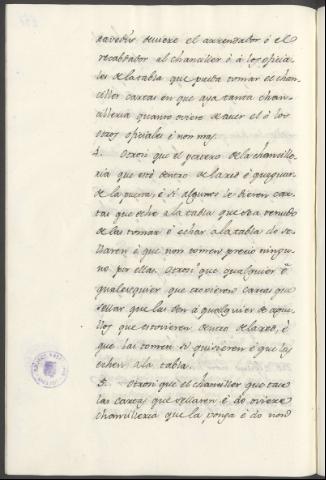 ravedis deviere el arrendador ó el
recabdador al chanciller ó á los oficia-
les de la tabla que pueda tomar el chan-
ciller cartas en que aya tanta chan-
cilleria quanto oviere de aver el ó los
otros oficiales é non mas.
4. Otrosi que el portero de la chancille-
ria que esté dentro de la red é guarde
de la puerta, é si algunos le dieren car-
tas que eche á la tabla que sea tenudo
de las tomar é echar á la tabla do se-
llaren é que non tomen precio ningu-
no por ellas. Otrosi que qualquier ó
qualesquier que troxieren cartas que
sellar que las den á qualquier de aque-
llos que estovieren dentro de la red, é
que las tomen si quisieren é que las
echen á la tabla.
5. Otrosi que el chanciller que tase
las cartas que sellaren é do oviere
chancilleria que la ponga é do non